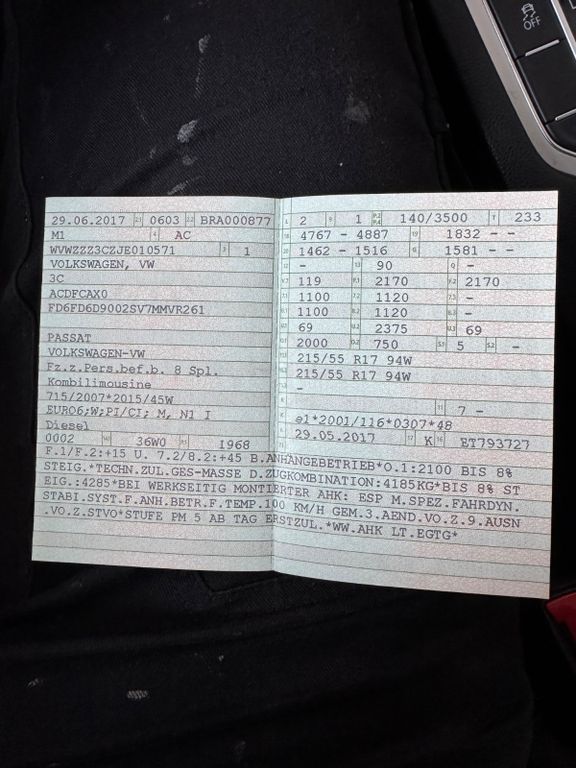 OFF
29.06.2017 2.1 0603 2.2 BRA000877
M1 4 AC
WVWZZZ3CZJE010571 3 1
VOLKSWAGEN, VW
3C
ACDFCAX0
FD6FD6D9002SV7MMVR261
PASSAT
VOLKSWAGEN-VW
Fz.z.Pers.bef.b. 8 Spl.
Kombilimousine
715/2007*2015/45W
EURO6;W;PI/CI; M, N1 I
Diesel
0002 36W0 1968
L 2 9 1 P.2 P.4 140/3500 T 233
18 4767 - 4887 19 1832 - -
20 1462 - 1516 G 1581 - -
12 - 13 90 Q -
V.7 119 F.1 2170 F.2 2170
7.1 1100 7.2 1120 7.3 -
8.1 1100 8.2 1120 8.3 -
U.1 69 U.2 2375 U.3 69
O.1 2000 O.2 750 S.1 5 S.2 -
215/55 R17 94W
215/55 R17 94W
-
11 7 -
K e1*2001/116*0307*48
6 29.05.2017 17 K 16 ET793727
F.1/F.2:+15 U. 7.2/8.2:+45 B.ANHANGEBETRIEB*O.1:2100 BIS 8%
STEIG.*TECHN.ZUL.GES-MASSE D.ZUGKOMBINATION:4185KG*BIS 8% ST
EIG.:4285*BEI WERKSEITIG MONTIERTER AHK: ESP M.SPEZ.FAHRDYN.
STABI.SYST.F.ANH.BETR.F.TEMP.100 KM/H GEM.3.AEND.VO.Z.9.AUSN
.VO.Z.STVO*STUFE PM 5 AB TAG ERSTZUL.*WW.AHK LT.EGTG*